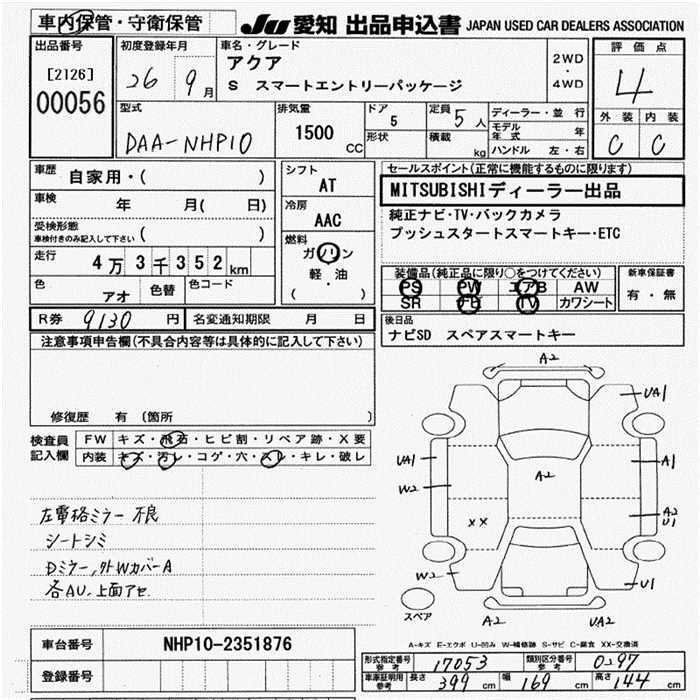 車内保管・守衛保管 JU 愛知 出品申込書 JAPAN USED CAR DEALERS ASSOCIATION
出品番号
[2126]
00056
初度登録年月
26 9月
車名・グレード
アクア
S スマートエントリーパッケージ
2WD
・
4WD
評価点
4
外装 内装
C C
型式
DAA-NHP10
排気量
1500 CC
ドア
5
形状
定員 5人
積載 kg
ディーラー・並行
モデル年式 年
ハンドル 左・右
車歴
自家用・( )
車検 年 月( 日)
受検形態
車検付きのみ記入して下さい ( )
走行 4万3千352km
色 アオ 色替 色コード
シフト
AT
冷房
AAC
燃料
ガソリン
軽・油
( )
セールスポイント(正常に機能するものに限ります)
MITSUBISHIディーラー出品
純正ナビ・TV・バックカメラ
プッシュスタートスマートキー・ETC
装備品(純正品に限り○をつけてください)
PS PW エアB AW
SR TV カワシート
新車保証書
有・無
R券 9130円 名変通知期限 月 日
後日品
ナビSD スペアスマートキー
注意事項申告欄(不具合内容等は具体的に記入して下さい)
修復歴 有(箇所 )
検査員記入欄
FW キズ・飛石・ヒビ割・リペア跡・X要
内装 キズ・汚レ・コゲ・穴・スレ・キレ・破レ
左電格ミラー不良
シートシミ
Dミラー,外WカバーA
各AU,上面アセ
A2
UA1
UA1
A1
W2
A2
A2
U1
XX
W2
U1
スペア
A2
UA2
A-キズ E-エクボ U-凹み W-補修跡 S-サビ C-腐食 XX-交換済
車台番号 NHP10-2351876
登録番号
形式指定番号 参考 17053 類別区分番号 参考 0297
車庫証明用 参考 長さ 399cm 幅 169cm 高さ 144cm